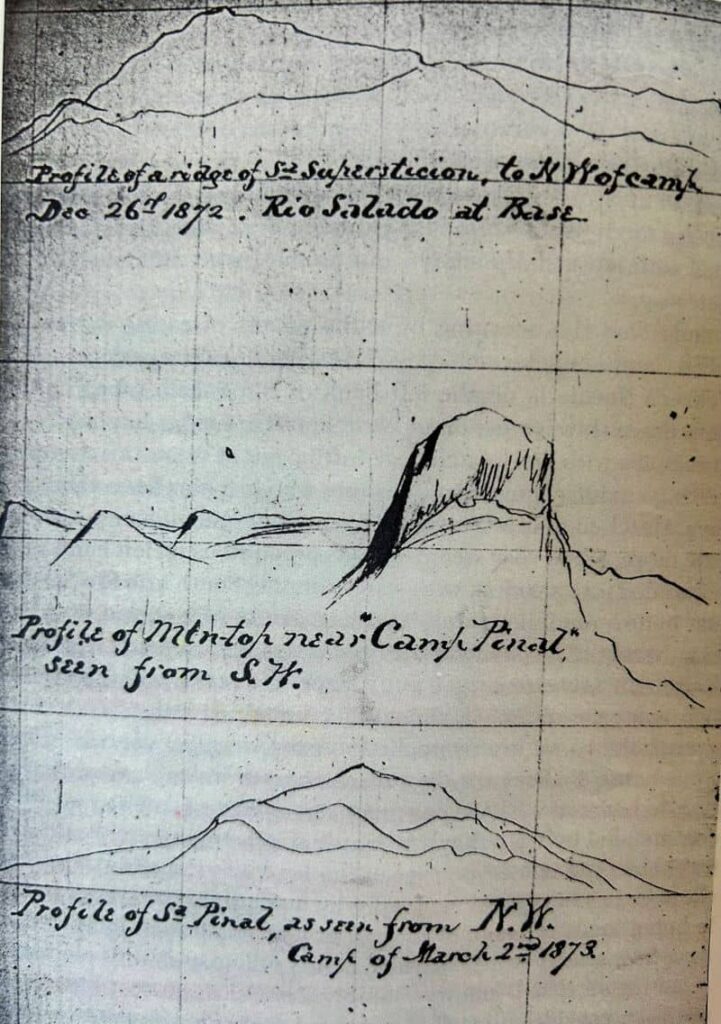 Profile of a ridge of Sa Supersticion, to N W of camp
Dec 26th 1872. Rio Salado at Base.
Profile of Mtn-top near "Camp Pinal",
seen from S.W.
Profile of Sa Pinal, as seen from N.W.
Camp of March 2nd 1873.